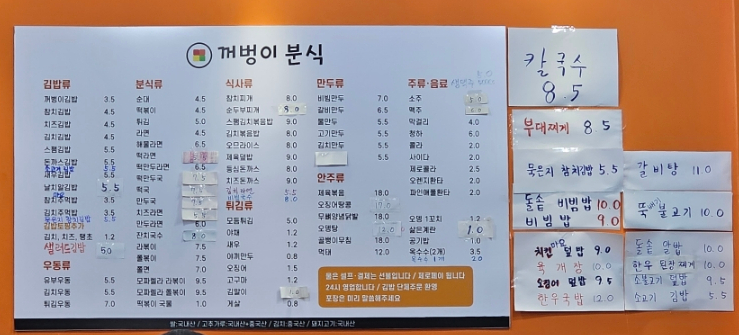 꺼벙이 분식
김밥류
꺼벙이김밥 3.5
참치김밥 4.5
치즈김밥 4.5
김치김밥 4.5
스팸김밥 5.5
돈까스김밥
새우김밥
날치알김밥 5.5
참치주먹밥 3.5
김치주먹밥
김밥토핑추가
김치, 치즈, 땡초 1.2
샐러드김밥 5.0
우동류
유부우동 5.5
김치우동 5.5
튀김우동 7.0
분식류
순대 4.5
떡볶이 4.5
튀김 5.0
라면 4.5
해물라면 6.5
떡라면
떡만두라면 6.5
떡만두국
떡국
만두국
치즈라면
만두라면 6.0
만치국수 8.0
라볶이 7.5
쫄볶이 7.5
쫄면 7.0
모짜렐라 라볶이 9.5
모짜렐라 쫄볶이 9.5
떡볶이 국물 1.0
식사류
참치찌개 8.0
순두부찌개 8.0
스팸김치볶음밥 9.0
김치볶음밥 8.0
오므라이스 8.0
제육덮밥 9.0
등심돈까스 8.0
치즈돈까스 9.0
튀김류
모듬튀김 5.0
야채 1.2
새우 1.2
야끼만두 0.8
오징어 1.5
고구마 1.2
김말이
계살 0.8
만두류
비빔만두 7.0
갈비만두 6.5
물만두 5.5
고기만두 5.5
김치만두 5.5
안주류
제육볶음 18.0
오징어탕콩
무뼈양념닭발 18.0
오뎅탕 12.0
골뱅이무침 18.0
먹태 12.0
주류·음료
소주 5.0
맥주
막걸리 4.0
청하 6.0
콜라 2.0
사이다 2.0
제로콜라 2.5
오렌지환타 2.0
파인애플환타 2.0
오뎅 1꼬치 1.2
삶은계란 1.0
공기밥 1.0
옥수수(2개) 3.5
물은 셀프·결제는 선불입니다 / 제로페이 됩니다
24시 영업합니다 / 김밥 단체주문 환영
포장은 미리 말씀해주세요
쌀:국내산 / 고추가루:국내산+중국산 / 김치:중국산 / 돼지고기:국내산
칼국수
8.5
부대찌개 8.5
묵은지 참치김밥 5.5
갈비탕 11.0
돌솥 비빔밥 10.0
비빔밥 9.0
뚝배기불고기 10.0
치킨마요 덮밥 9.0
육개장 10.0
소불고기 덮밥 9.5
한우국밥 12.0
돌솥 알밥 10.0
한우 된장찌개 10.0
소불고기 덮밥 9.5
소고기 김밥 5.5